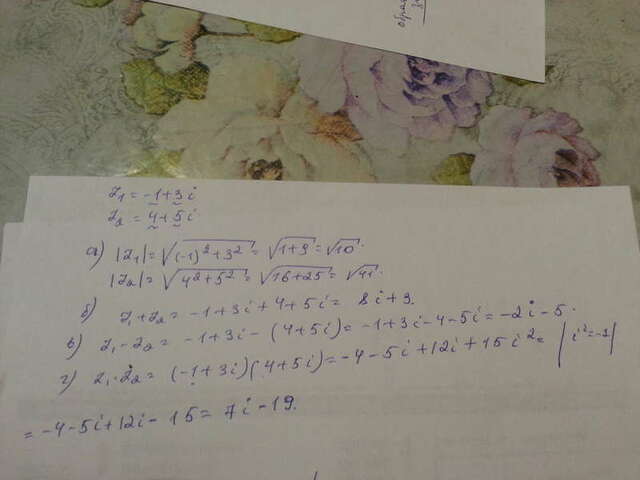 z₁ = -1+3i
z₂ = 4+5i
а) |z₁| = √((-1)²+3²) = √(1+9) = √10.
|z₂| = √(4²+5²) = √(16+25) = √41.
б) z₁+z₂ = -1+3i+4+5i = 8i+3.
в) z₁-z₂ = -1+3i-(4+5i) = -1+3i-4-5i = -2i-5.
г) z₁·z₂ = (-1+3i)(4+5i) = -4-5i+12i+15i² = |i²=-1|
= -4-5i+12i-15 = 7i-19.